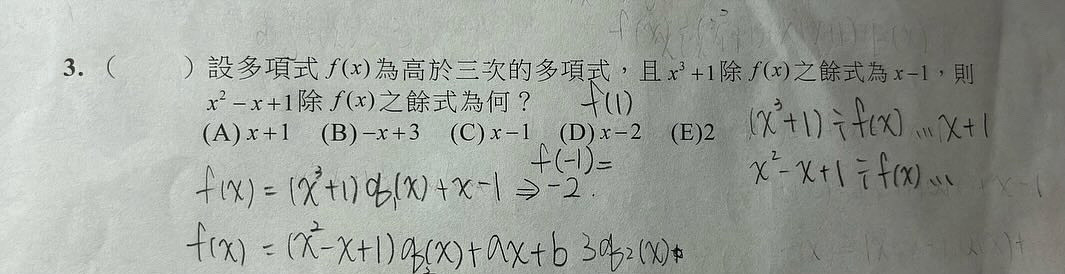 3. (     ) 設多項式 f(x) 為高於三次的多項式，且 x³+1 除 f(x) 之餘式為 x−1，則
x²−x+1 除 f(x) 之餘式為何？ f(1)
(A) x+1 (B) −x+3 (C) x−1 (D) x−2 (E) 2
(x³+1)÷f(x) … x+1
f(-1)=
x²−x+1÷f(x) …
f(x) = (x³+1)q₁(x)+x−1 ⇒ −2.
f(x) = (x²−x+1)q₂(x)+ax+b 3q₂(x)